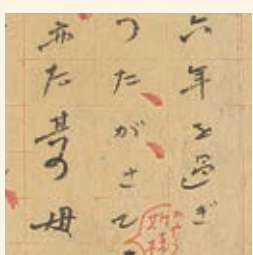 六年を過ぎ
つたがさて
亦た其の母